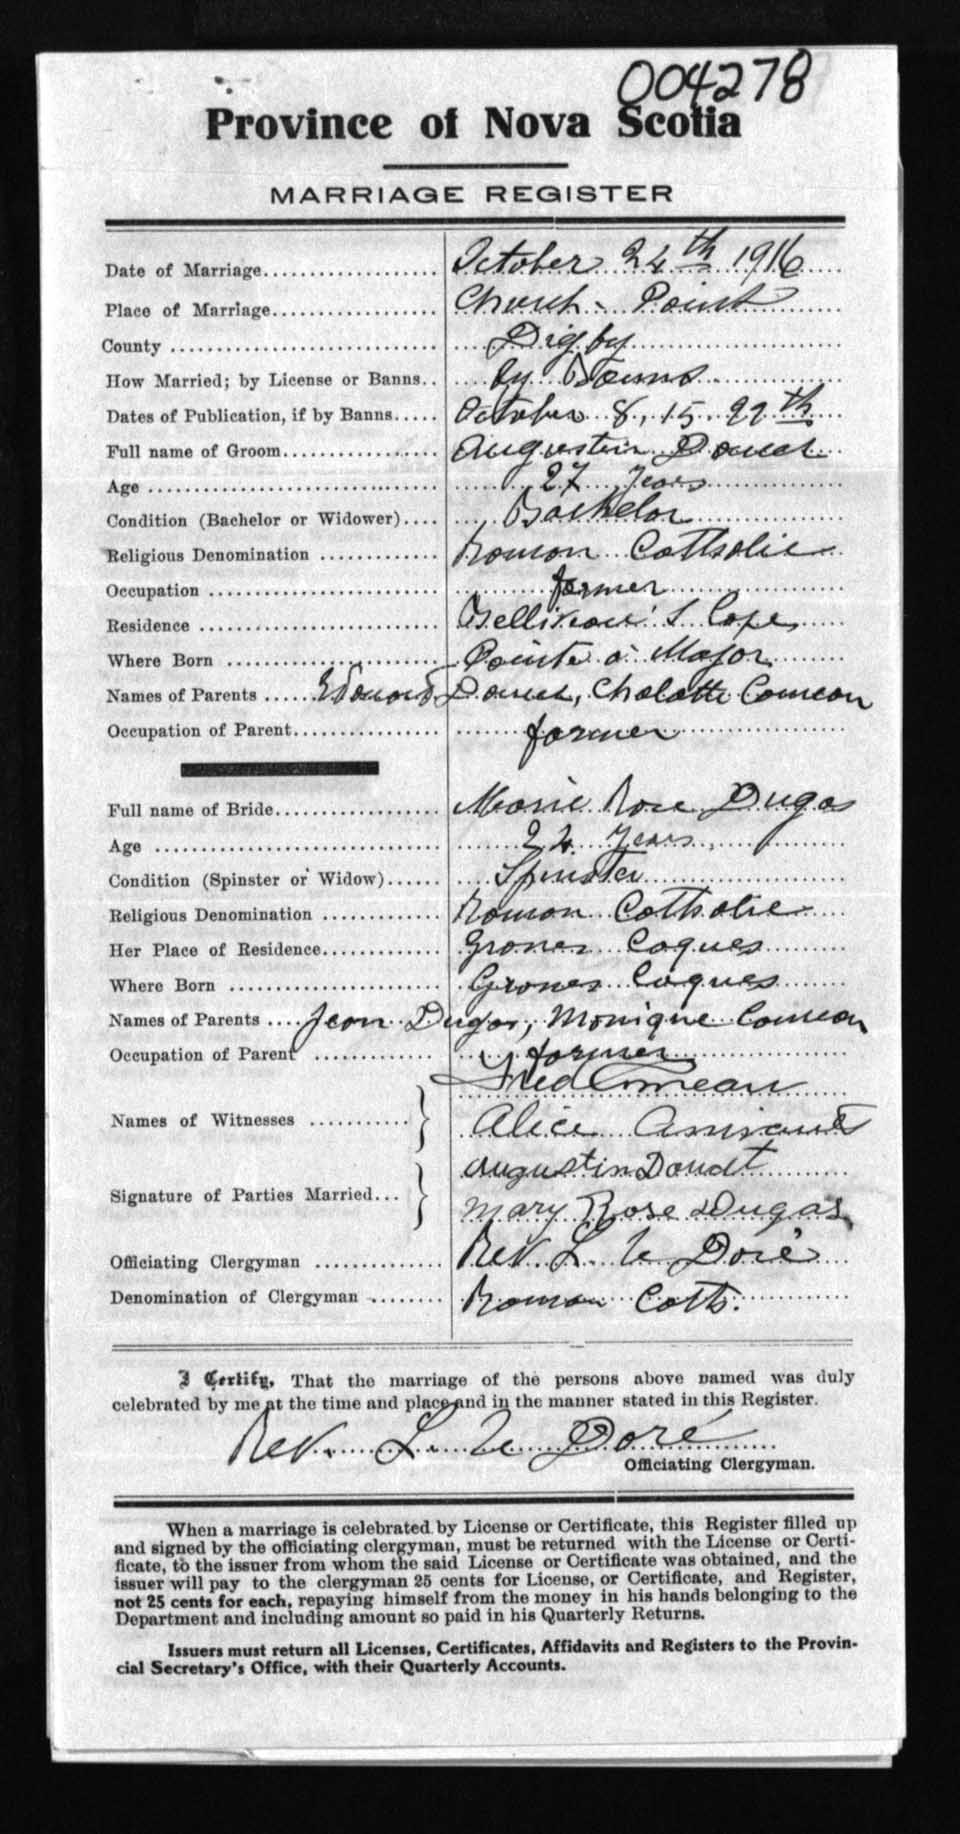 004278
Province of Nova Scotia
MARRIAGE REGISTER
Date of Marriage................... October 24th 1916
Place of Marriage.................. Church - Point
County ............................ Digby
How Married; by License or Banns.. by Banns
Dates of Publication, if by Banns..... October 8, 15, 22th
Full name of Groom................. Augustin Doucet
Age ............................... 27 Years
Condition (Bachelor or Widower).... Bachelor
Religious Denomination ............ Roman Catholic
Occupation ........................ farmer
Residence ......................... Belliveau's Cope
Where Born ........................ Pointe a Major
Names of Parents ..... Edouard Doucet, Chalotte Comeau
Occupation of Parent............... farmer
Full name of Bride................. Marie Rose Dugas
Age ............................... 24 Years
Condition (Spinster or Widow)...... Spinster
Religious Denomination ............ Roman Catholic
Her Place of Residence............. Grones Coques
Where Born ........................ Grones Coques
Names of Parents .... Jean Dugas, Monique Comeau
Occupation of Parent ............ farmer
Fred Comeau
Names of Witnesses ...........
Alice Amirault
Augustin Doudt
Signature of Parties Married...
Mary Rose Dugas
Officiating Clergyman ............. Rev. L. Le Doré
Denomination of Clergyman ........ Roman Cath.
I Certify, That the marriage of the persons above named was duly
celebrated by me at the time and place and in the manner stated in this Register.
Rev. L. Le Doré
Officiating Clergyman.
When a marriage is celebrated by License or Certificate, this Register filled up
and signed by the officiating clergyman, must be returned with the License or Certi-
ficate, to the issuer from whom the said License or Certificate was obtained, and the
issuer will pay to the clergyman 25 cents for License, or Certificate, and Register,
not 25 cents for each, repaying himself from the money in his hands belonging to the
Department and including amount so paid in his Quarterly Returns.
Issuers must return all Licenses, Certificates, Affidavits and Registers to the Provin-
cial Secretary's Office, with their Quarterly Accounts.